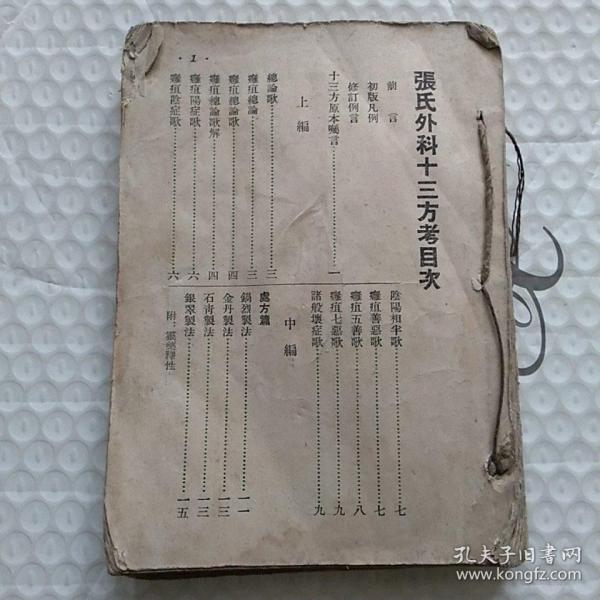 張氏外科十三方考目次
前言
初版凡例
修訂例言
十三方原本囑言……一
上編
總論歌……三
癰疽總論……三
癰疽總論歌……四
癰疽總論歌解……四
癰疽陽症歌……六
癰疽陰症歌……六
陰陽相半歌……七
癰疽善惡歌……七
癰疽五善歌……八
癰疽七惡歌……九
諸般壞症歌……九
中編
處方篇
鍋烈製法……一一
金丹製法……一三
石青製法……一三
銀翠製法……一五
附：靈藥釋性
·1·
孔夫子旧書网
www.kongfz.com